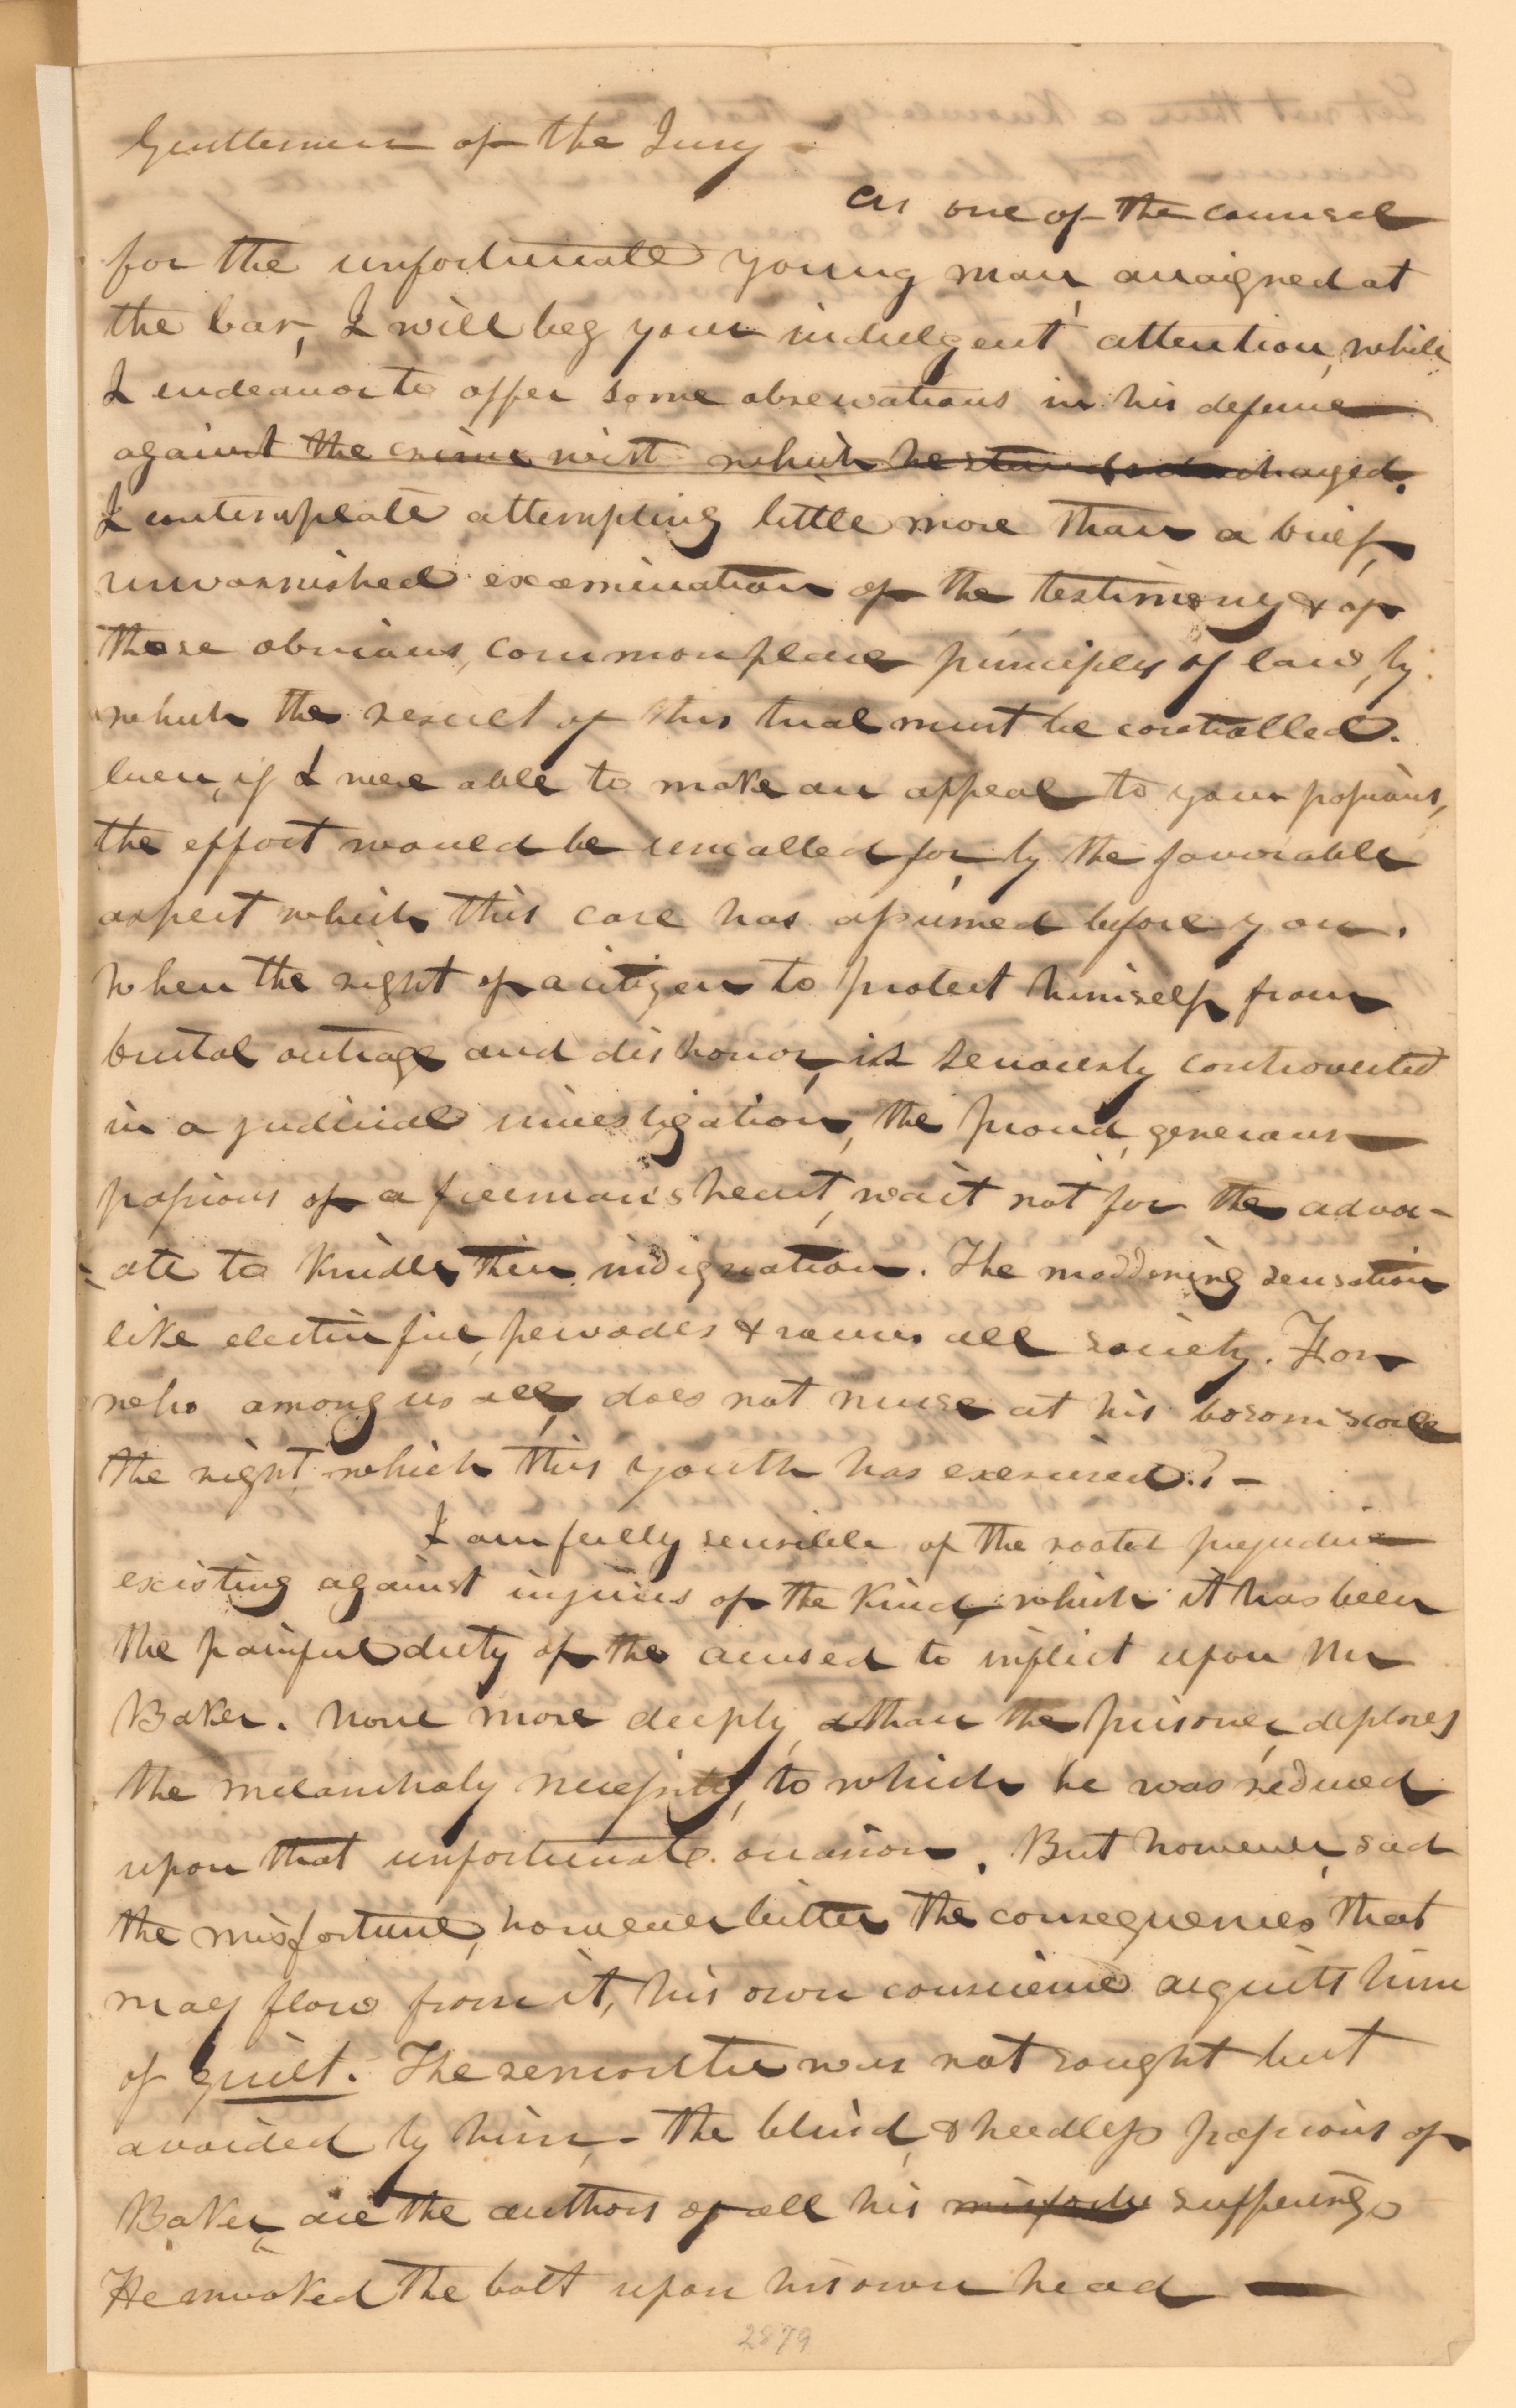 Gentlemen of the Jury -
As one of the counsel
for the unfortunate young man, arraigned at
the bar, I will beg your indulgent attention, while
I endeavor to offer some observations in his defence
against the crime with which he stands charged.
I contemplate attempting little more than a brief,
unvarnished examination of the testimony & of
those obvious, commonplace principles of law, by
which the result of this trial must be controlled.
Even, if I were able to make an appeal to your passions,
the effort would be uncalled for, by the favorable
aspect which this case has assumed before you.
When the right of a citizen to protect himself from
brutal outrage and dishonor, is seriously controverted
in a judicial investigation, the proud, generous
passions of a freeman's heart, wait not for the advoc-
-ate to kindle their indignation. The maddening sensation
like electric fire, pervades & rouses all society. For
who among us all, does not nurse at his bosom's core
the right which this youth has exercised? -
I am fully sensible of the rooted prejudice
existing against injuries of the kind, which it has been
the painful duty of the accused to inflict upon Mr
Baker. None more deeply, than the prisoner, deplores
the melancholy necessity, to which he was reduced
upon that unfortunate occasion. But however, sad
the misfortune, however bitter the consequences that
may flow from it, his own conscience acquits him
of guilt. The rencontre was not sought but
avoided by him, - the blind, & heedless passions of
Baker, are the authors of all his misfortu sufferings
He invoked the bolt upon his own head —
2879